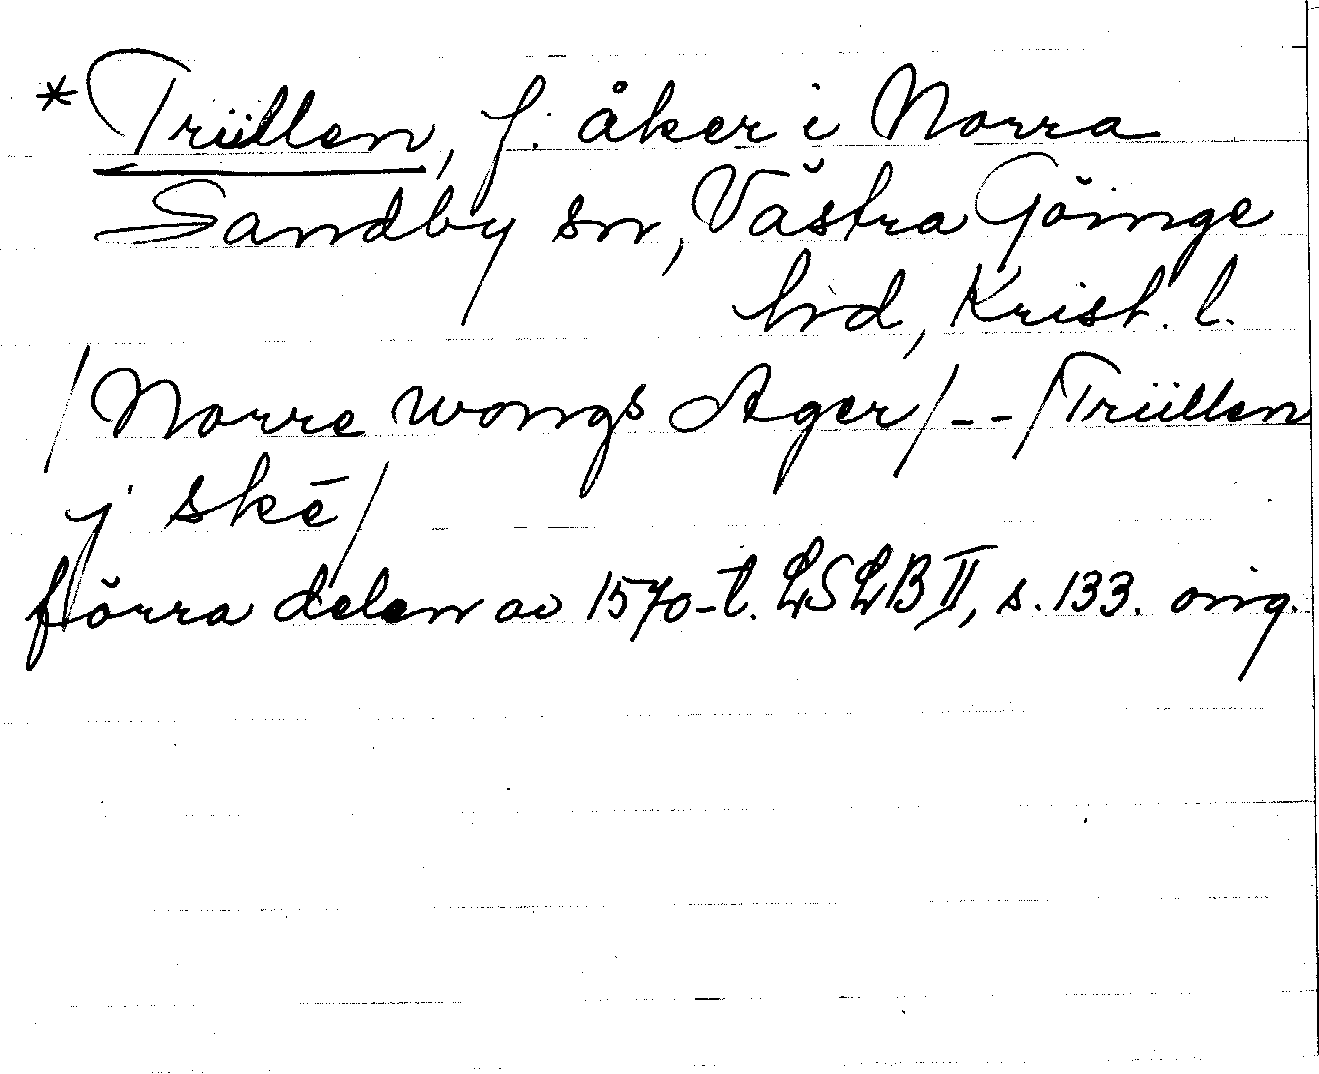 * Trüllen, f. åker i Norra
Sandby sn, Västra Göinge
hrd, Krist. l.
/Norre wongs Ager/--/Trüllen
j skē/
förra delen av 1570-t. LSLB II, s. 133. orig.